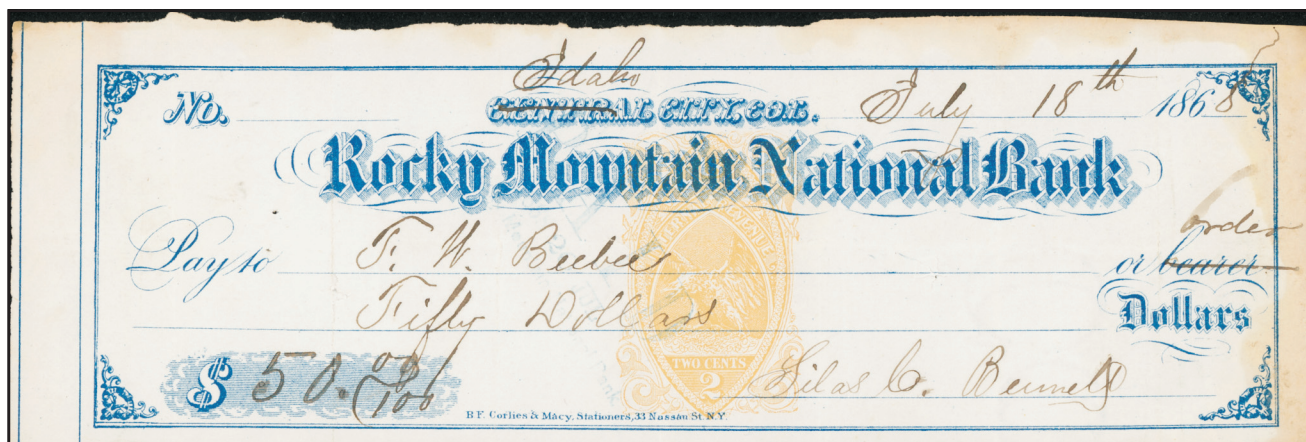 Idaho
No. CENTRAL CITY, COL. July 18th 1868
Rocky Mountain National Bank
order
Pay to F. W. Beebee or bearer
Fifty Dollars Dollars
TWO CENTS
2
$ 50.00/100 Silas C. Bennett
B.F. Corlies & Macy, Stationers, 33 Nassau St. N.Y.